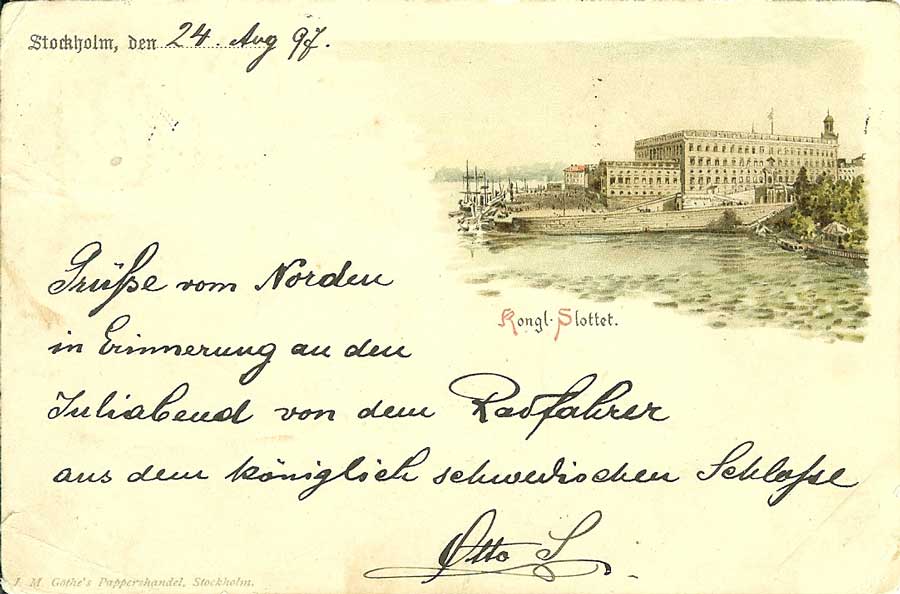 Stockholm, den 24. Aug 97.
Kongl. Slottet.
Grüße vom Norden
in Erinnerung an den
Juliabend von dem Radfahrer
aus dem königlich schwedischen Schloße
Otto S.
J. M. Göthe's Pappershandel, Stockholm.